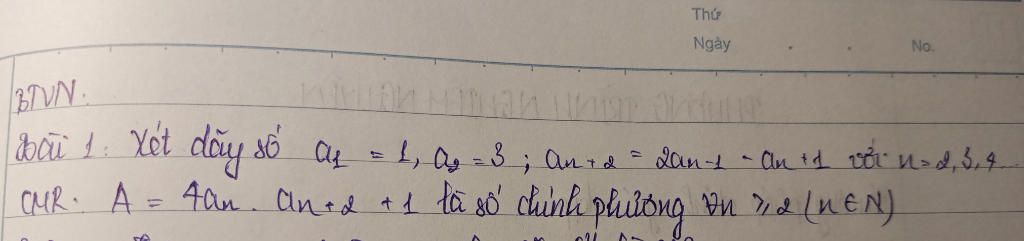 Thứ
Ngày . . No.
BTVN.
Bài 1: Xét dãy số a1 = 1, a2 = 3 ; an+2 = 2an-1 - an+1 với n=2,3,4
CMR. A = 4an . an+2 +1 là số chính phương ∀n ⩾ 2 (n∈N)